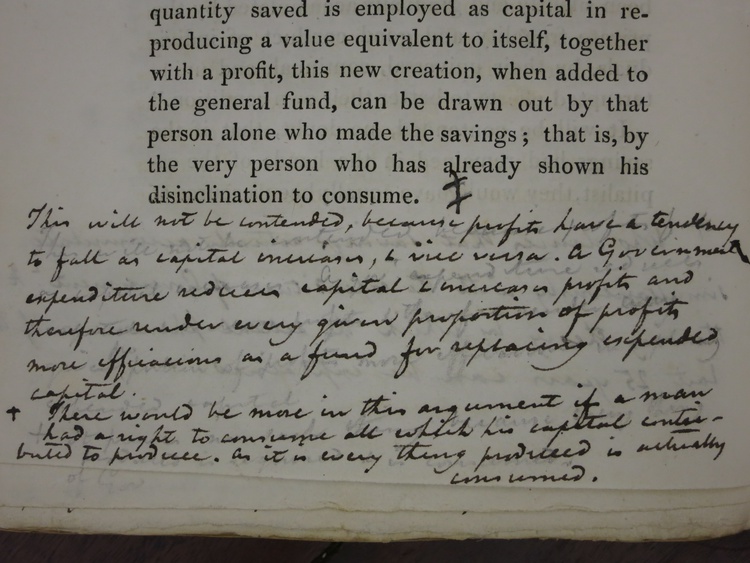 quantity saved is employed as capital in re-
producing a value equivalent to itself, together
with a profit, this new creation, when added to
the general fund, can be drawn out by that
person alone who made the savings; that is, by
the very person who has already shown his
disinclination to consume. ‡
This will not be contended, because profits have a tendency
to fall as capital increases, & vice versa. A Government
expenditure reduces capital & increases profits and
therefore render every given proportion of profits
more efficacious as a fund for replacing expended
capital.
† There would be more in this argument if a man
had a right to consume all which his capital contri-
buted to produce. As it is every thing produced is actually
consumed.